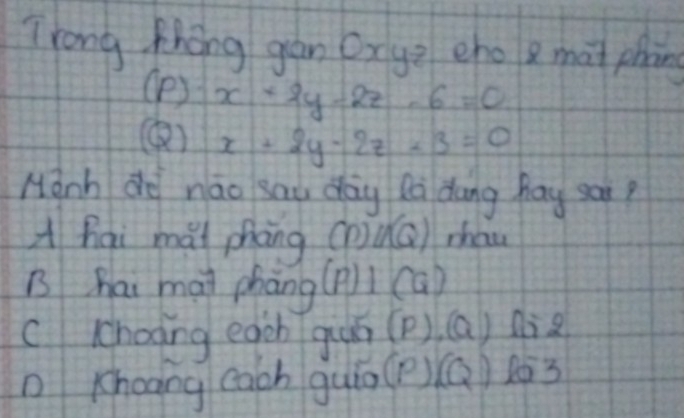 Trong không gian Oxyz cho 2 mặt phẳng
(P) x + 2y - 2z - 6 = 0
(Q) x + 2y - 2z + 3 = 0
Mệnh đề nào sau đây là đúng hay sai?
A hai mặt phẳng (P)//(Q) nhau
B hai mặt phẳng (P)⊥(Q)
C Khoảng cách giữa (P),(Q) là 2
D Khoảng cách giữa (P)(Q) là 3